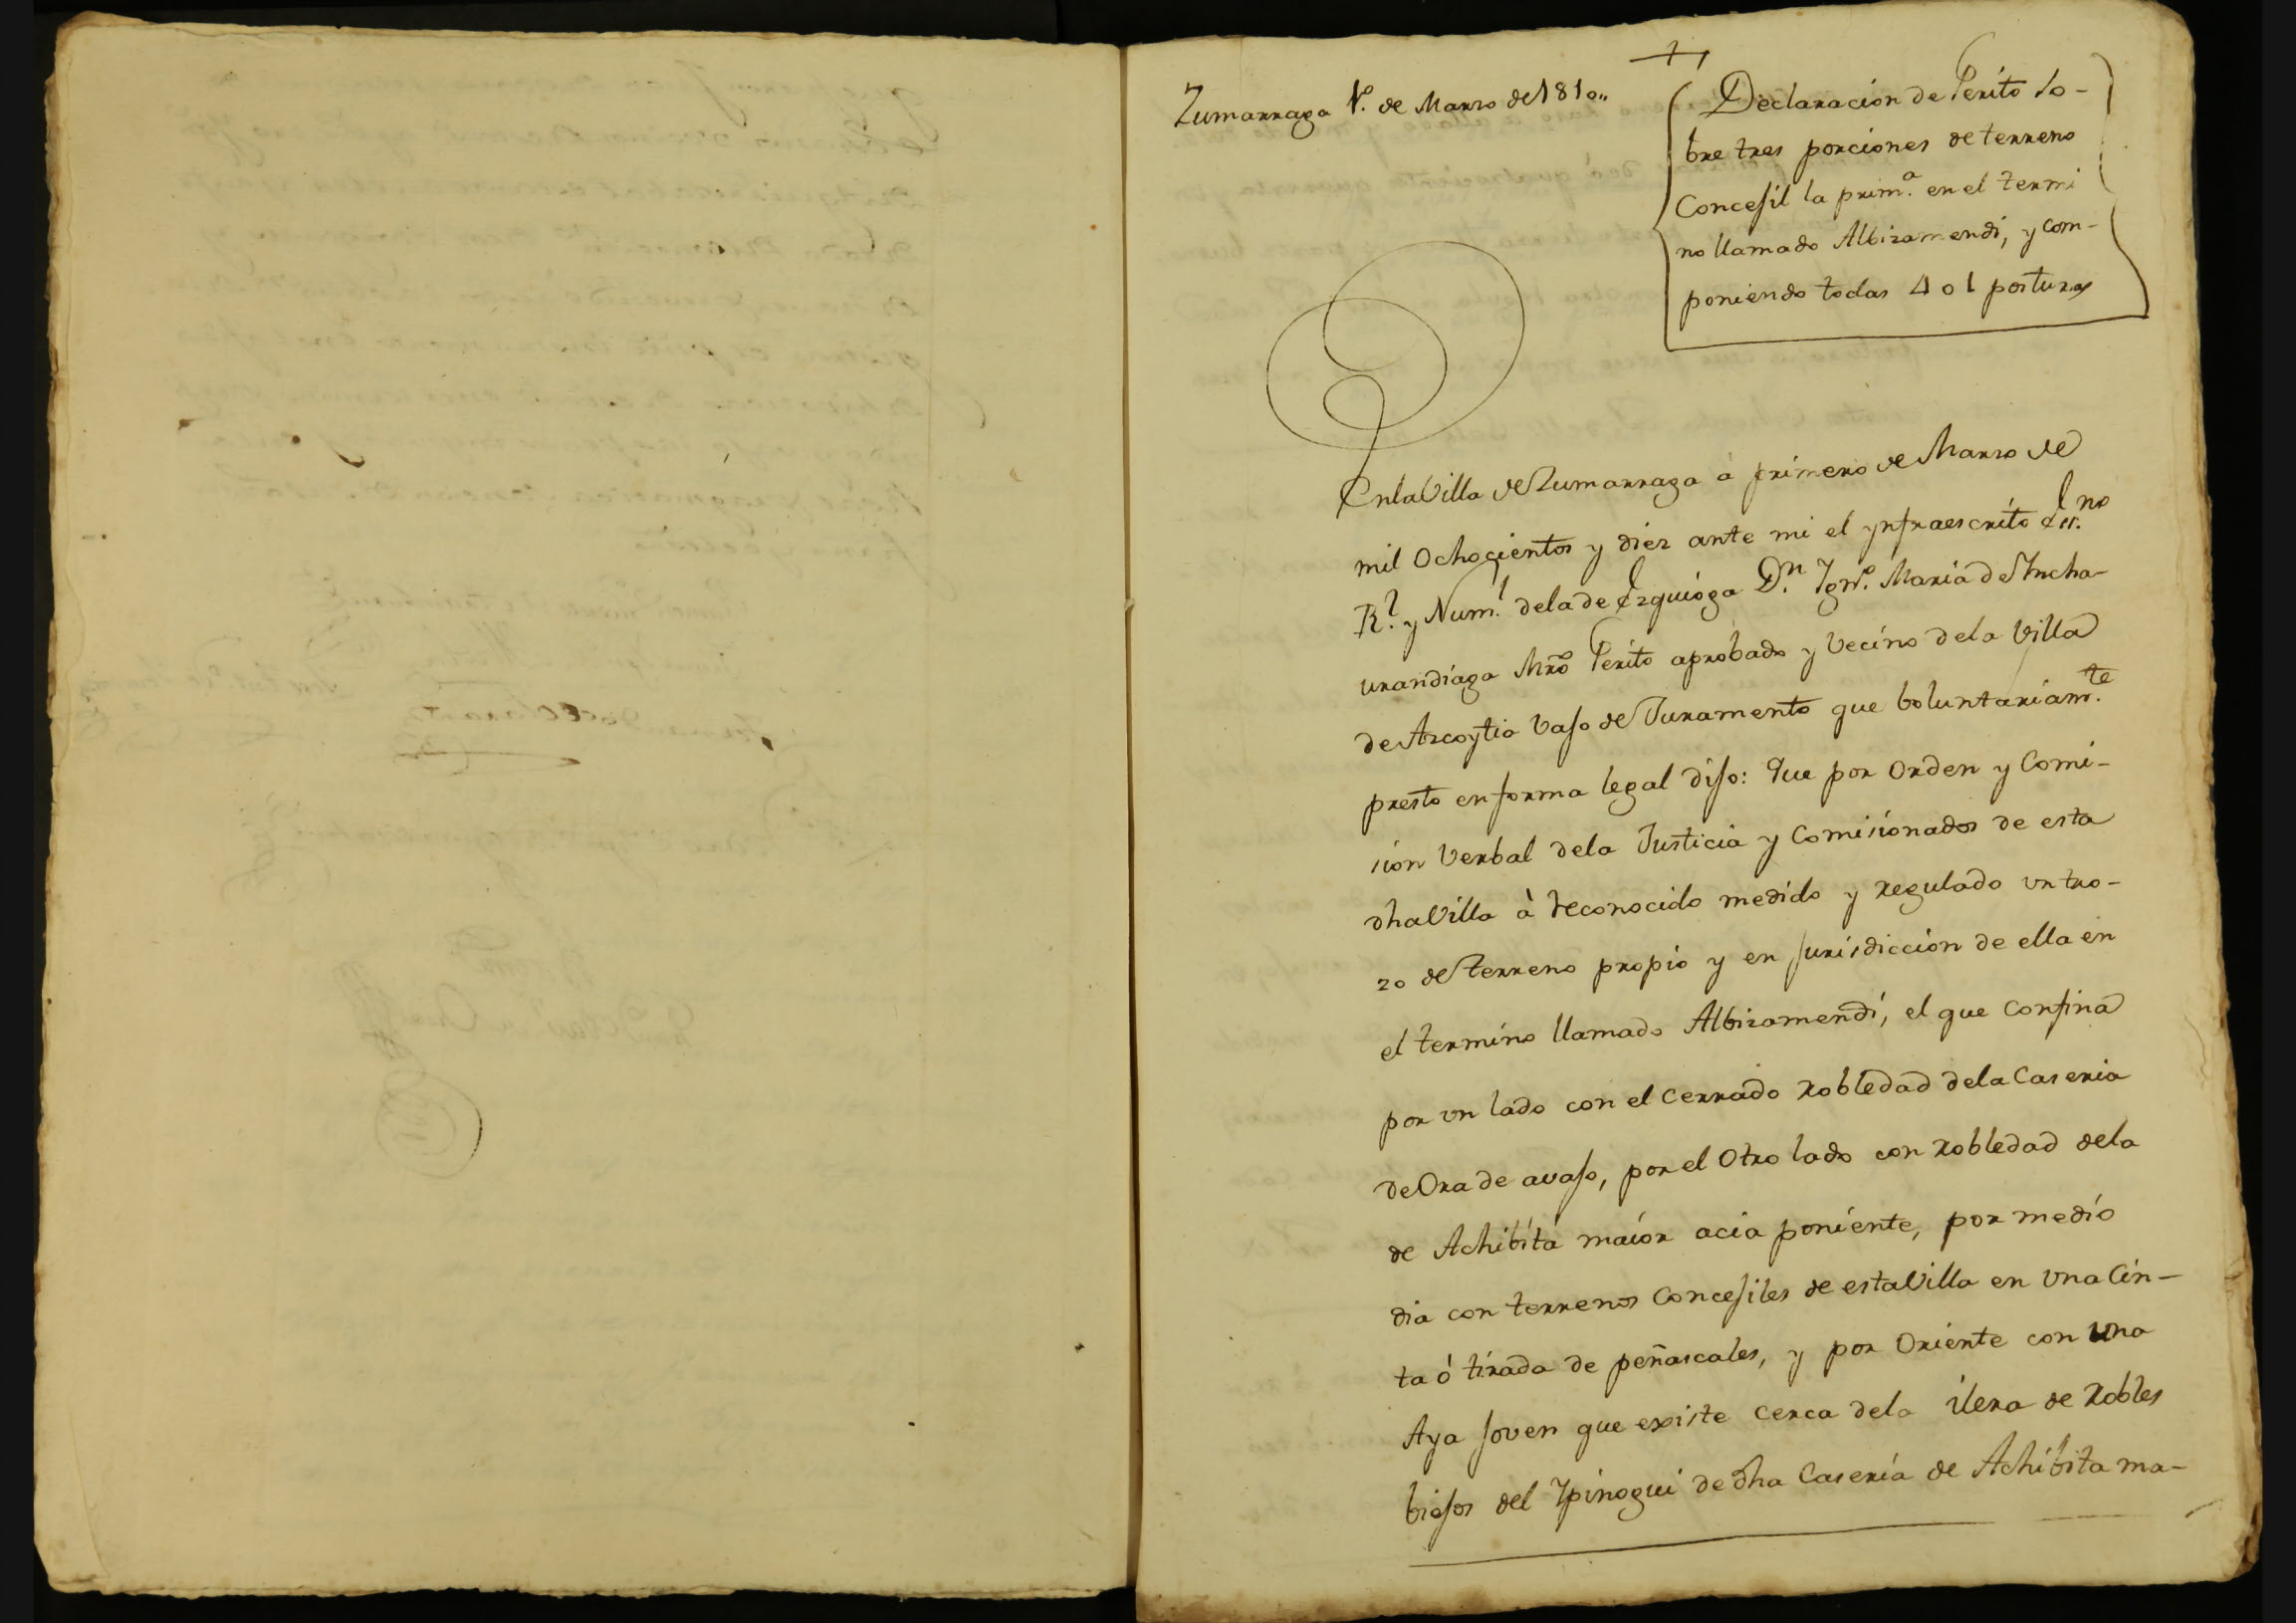 +
Zumarraga 1º. de Marzo de 1810,,
Declaracion de Perito so-
bre tres porciones de terreno
Concejil la prim.ª en el termi
no llamado Albizamendi, y com-
poniendo todas 401 posturas
En la Villa de Zumarraga à primero de Marzo de
mil Ochocientos y diez ante mi el ynfraescrito Ess.no
R.l y Num.l dela de Ezquioga D.n Ign.º Maria de Yncha-
urandiaga Mrõ Perito aprobado y Vecino dela Villa
de Azcoytia vajo de Juramento que boluntariam.te
presto en forma legal dijo: Que por Orden y Comi-
sion Verbal dela Justicia y Comisionados de esta
dha Villa à reconocido medido y regulado vn tro-
zo de terreno propio y en jurisdiccion de ella en
el termino llamado Albizamendi, el que confina
por vn lado con el cerrado robledad dela Caseria
de Ora de avajo, por el Otro lado con robledad dela
de Achibita maior acia poniente, por medio
dia con terrenos Concejiles de esta Villa en Vna Cin-
ta ó tirada de peñascales, y por Oriente con Vna
Aya joven que existe cerca dela ilera de Robles
biejos del Ypinogui de dha Caseria de Achibita ma-